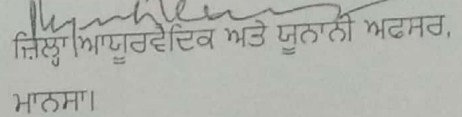 ਜ਼ਿਲ੍ਹਾ ਆਯੂਰਵੈਦਿਕ ਅਤੇ ਯੂਨਾਨੀ ਅਫਸਰ,
ਮਾਨਸਾ।